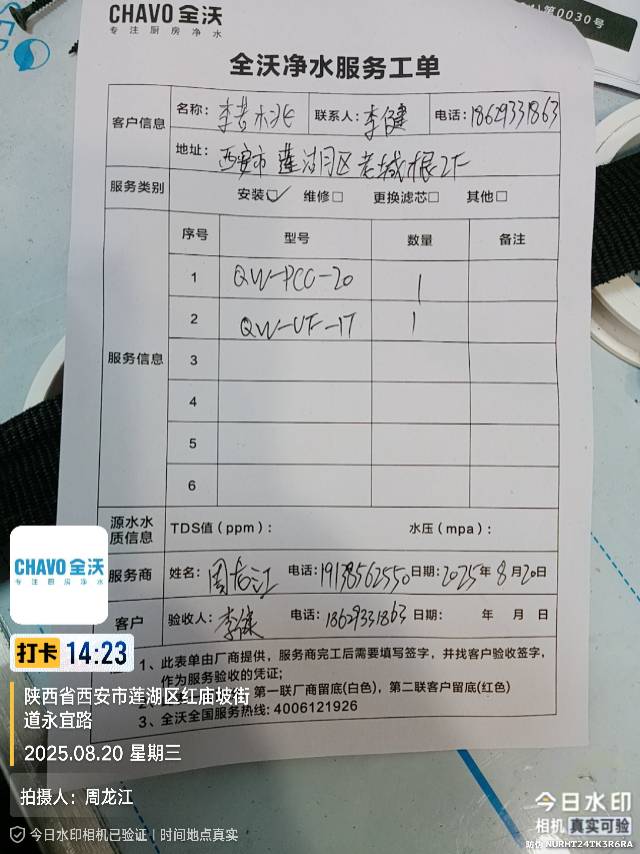 CHAVO 全沃
专注厨房净水
第0030号
全沃净水服务工单
客户信息 名称： 联系人：李健 电话：18629331863
地址：西安市 莲湖区 老城根2F
服务类别 安装☑ 维修□ 更换滤芯□ 其他□
服务信息
序号 型号 数量 备注
1 QW-PCC-20 1
2 QW-UF-1T 1
3
4
5
6
源水水质信息 TDS值（ppm）： 水压（mpa）：
服务商 姓名：周龙江 电话：19138562550 日期：2025年8月20日
客户 验收人：李健 电话：18629331863 日期： 年 月 日
1、此表单由厂商提供，服务商完工后需要填写签字，并找客户验收签字，
作为服务验收的凭证；
第一联厂商留底(白色)，第二联客户留底(红色)
3、全沃全国服务热线：4006121926
CHAVO 全沃
专注厨房净水
打卡 14:23
陕西省西安市莲湖区红庙坡街
道永宜路
2025.08.20 星期三
拍摄人：周龙江
今日水印相机已验证 | 时间地点真实
今日水印
相机 真实可验
防伪 NURHT24TK3R6RA